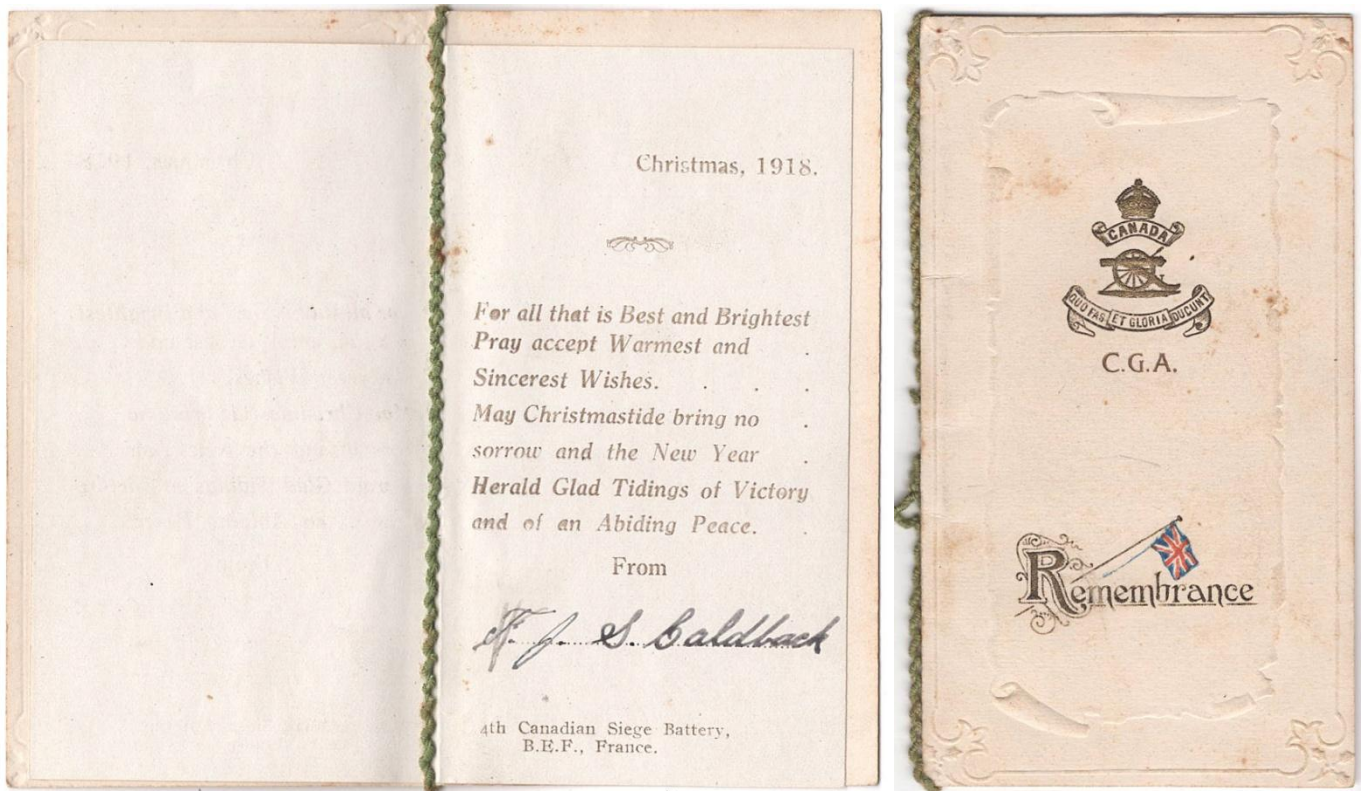 Christmas, 1918.
For all that is Best and Brightest
Pray accept Warmest and .
Sincerest Wishes. . . .
May Christmastide bring no .
sorrow and the New Year .
Herald Glad Tidings of Victory
and of an Abiding Peace. .
From
J. S.
4th Canadian Siege Battery,
B.E.F., France.
CANADA
QUO FAS ET GLORIA DUCUNT
C.G.A.
Remembrance